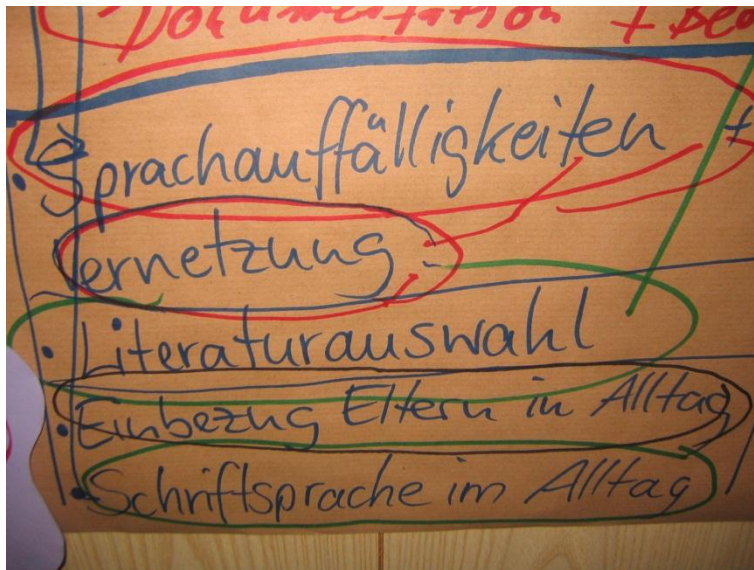 Dokumentation +
• Sprachauffälligkeiten +
Vernetzung
• Literaturauswahl
• Einbezug Eltern in Alltag
• Schriftsprache im Alltag